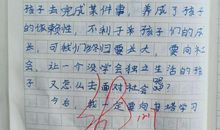 孩子去完成某件事，养成了孩子
的依赖性，不利于孩子们的成
长，可我们终归要长大，要向社
会，让一个没学会独立生活的孩
子，又怎么去面对社会呢？
今后，我一定要向 学习